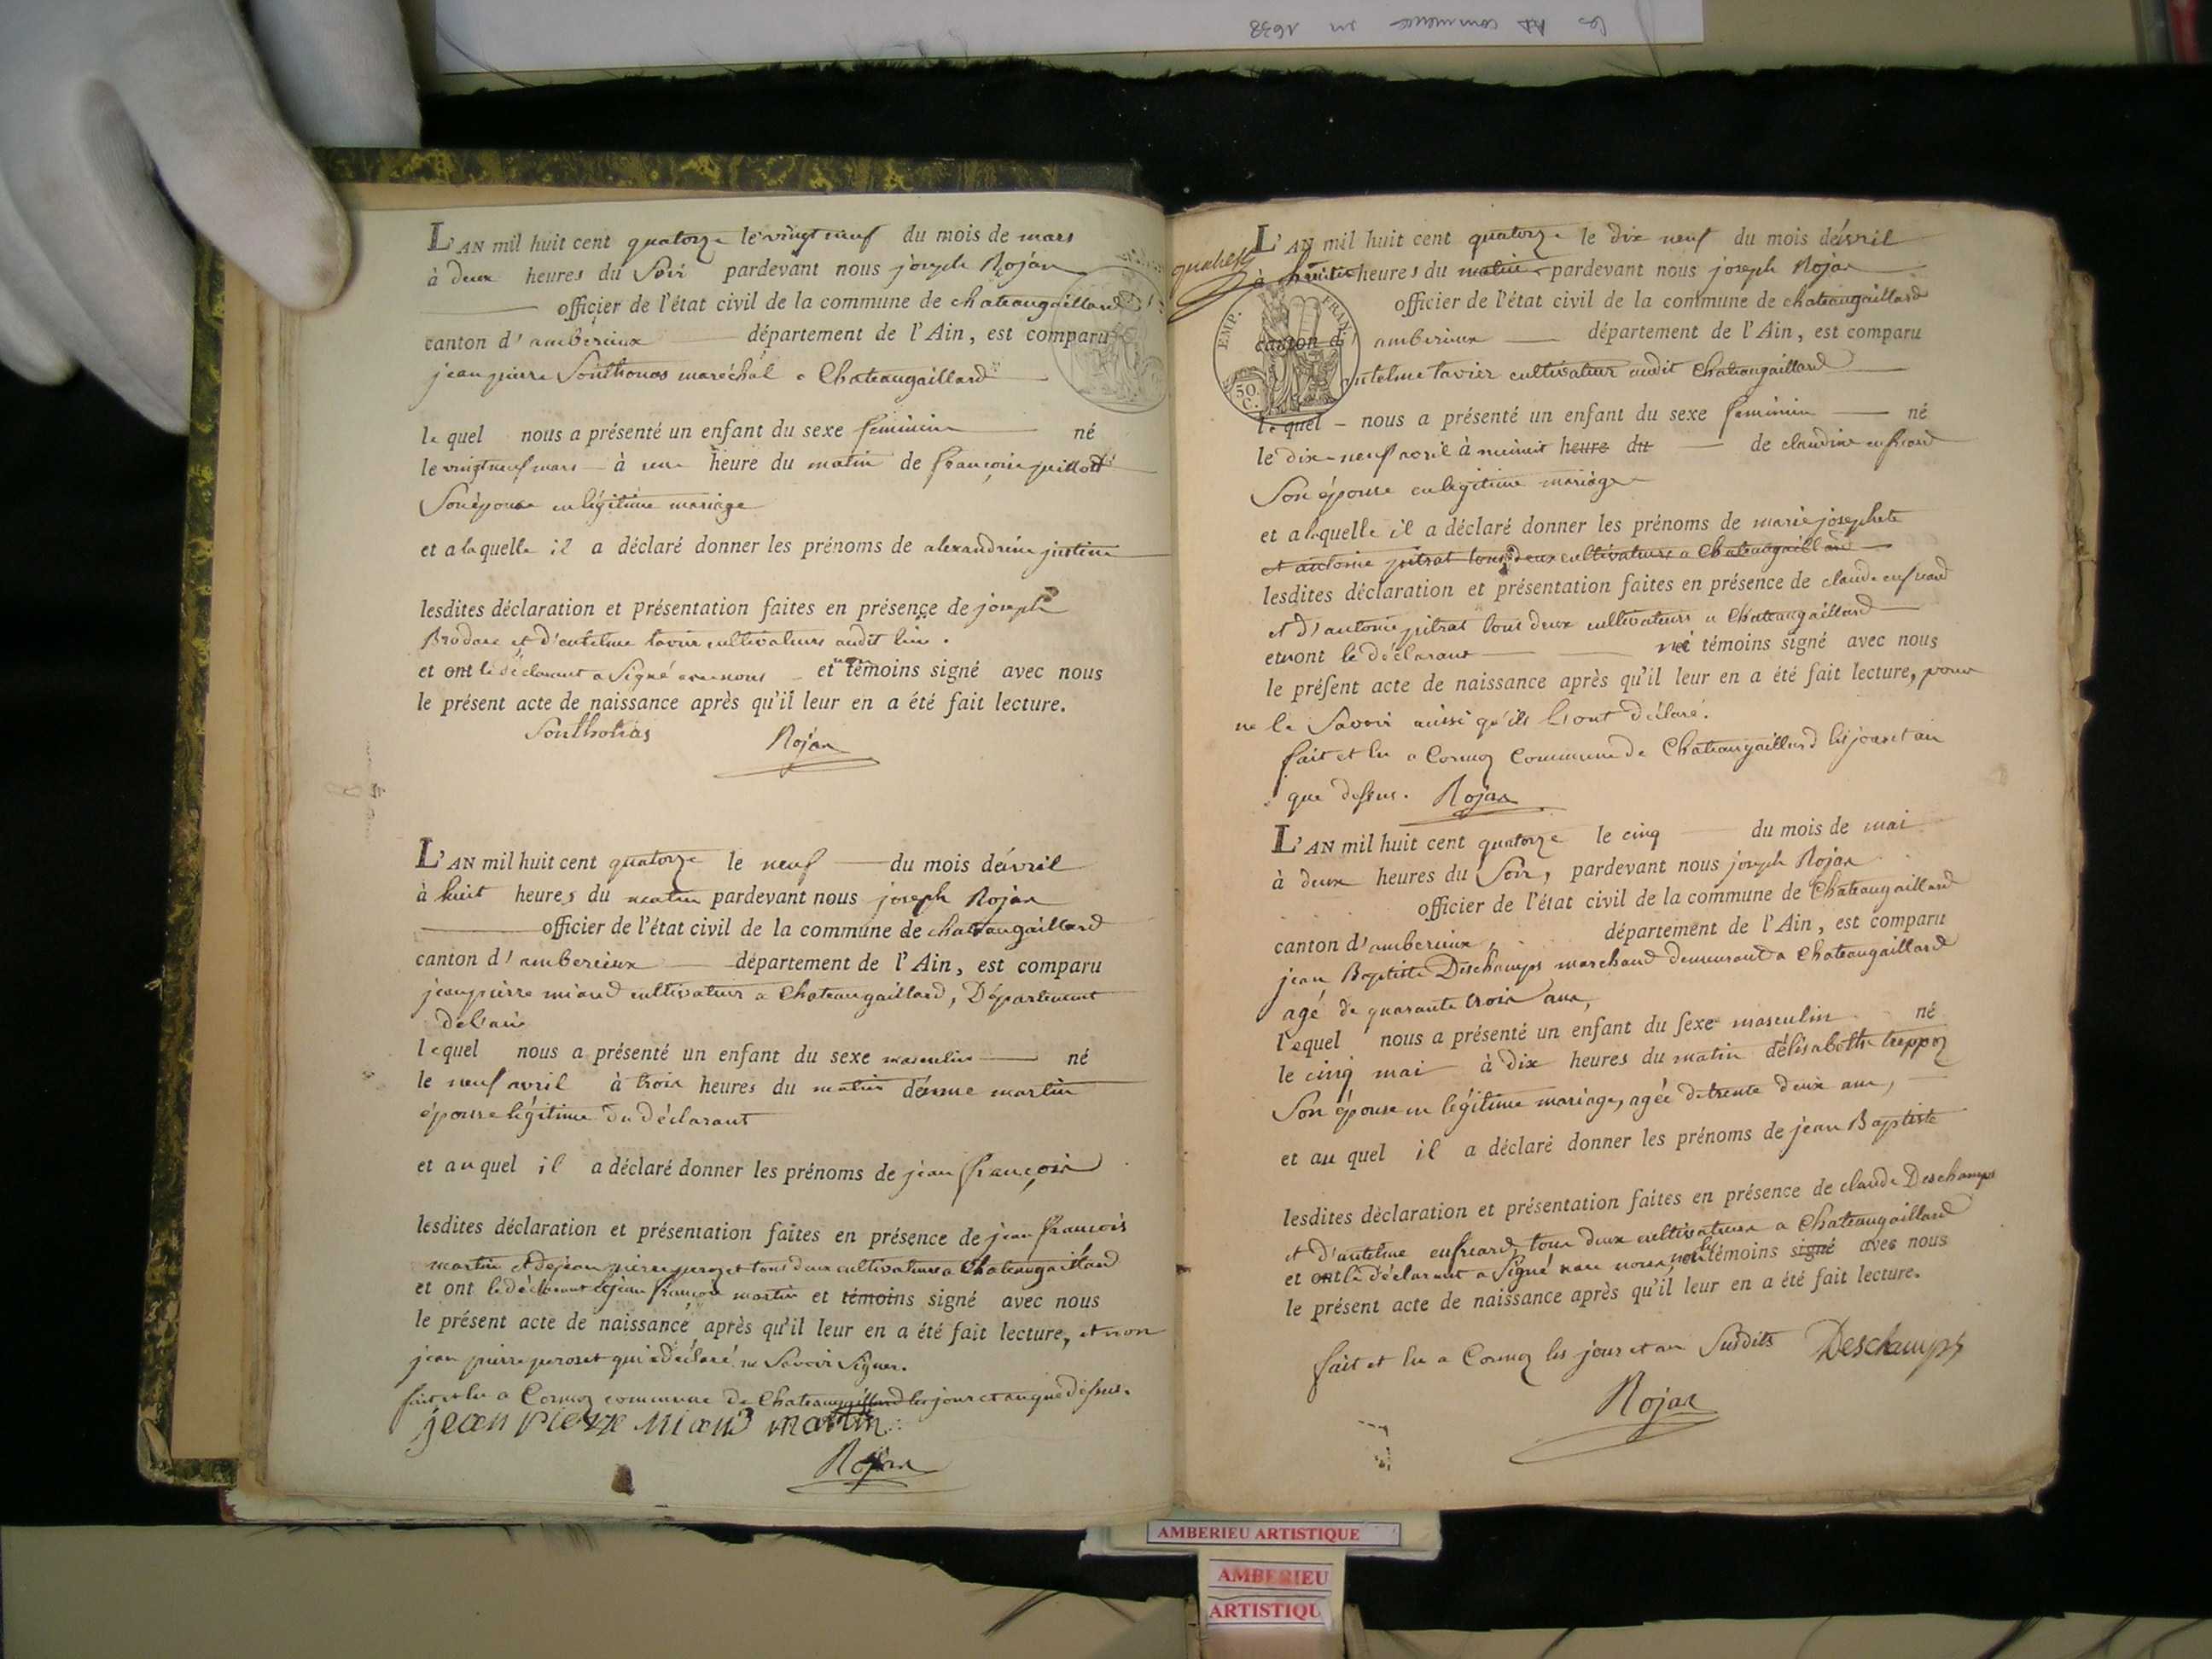 les commence en 1638
L'AN mil huit cent quatorze le vingt neuf du mois de mars
à deux heures du Soir pardevant nous joseph Rojan
officier de l'état civil de la commune de chateaugaillard
canton d'amberieux département de l'Ain, est comparu
jean pierre Southonas maréchal a Chateaugaillard
le quel nous a présenté un enfant du sexe feminin né
le vingt neuf mars à une heure du matin de françoise juillard
Son épouse en légitime mariage
et a la quelle il a déclaré donner les prénoms de alexandrine justine
lesdites déclaration et présentation faites en présence de joseph
Brodare et d'antelme tavier cultivateurs audit lieu.
et ont le déclarant a Signé avec nous et témoins signé avec nous
le présent acte de naissance après qu'il leur en a été fait lecture.
Southonas Rojan
L'AN mil huit cent quatorze le neuf du mois d'évril
à huit heures du matin pardevant nous joseph Rojan
officier de l'état civil de la commune de chateaugaillard
canton d'amberieux département de l'Ain, est comparu
jean pierre miand cultivateur a Chateaugaillard, Département
de l'ain
lequel nous a présenté un enfant du sexe masculin né
le neuf avril à trois heures du matin d'énne martin
épouse légitime du déclarant
et au quel il a déclaré donner les prénoms de jean françois
lesdites déclaration et présentation faites en présence de jean françois
martin et de jean pierre perozet tous deux cultivateurs a Chateaugaillard
et ont le déclarant et jean françois martin et témoins signé avec nous
le présent acte de naissance après qu'il leur en a été fait lecture, et non
jean pierre perozet qui a déclaré ne Savoir Signer.
fait et lu a Cormoz commune de Chateaugaillard les jour et an que dessus.
jean pierre miand martin
Rojan
L'AN mil huit cent quatorze le dix neuf du mois d'évril
à heures du matin pardevant nous joseph Rojan
officier de l'état civil de la commune de chateaugaillard
EMP. FRAN.
50 C.
canton d'amberieux département de l'Ain, est comparu
antelme tavier cultivateur audit Chateaugaillard
le quel nous a présenté un enfant du sexe feminin né
le dix-neuf avril à minuit heure du de claudine enfriard
Son épouse en légitime mariage
et a laquelle il a déclaré donner les prénoms de marie josephete
et antoine pitrat tous deux cultivateurs a Chateaugaillard
lesdites déclaration et présentation faites en présence de claude enfriard
et d'antoine pitrat tous deux cultivateurs a Chateaugaillard
et n'ont le déclarant ni témoins signé avec nous
le présent acte de naissance après qu'il leur en a été fait lecture, pour
ne le Savoir ainsi qu'ils l'ont déclaré.
fait et lu a Cormoz Commune de Chateaugaillard les jour et an
que dessus. Rojan
L'AN mil huit cent quatorze le cinq du mois de mai
à deux heures du Soir, pardevant nous joseph Rojan
officier de l'état civil de la commune de Chateaugaillard
canton d'amberieux, département de l'Ain, est comparu
jean Baptiste Deschamps marchand demeurant a Chateaugaillard
agé de quarante trois ans,
lequel nous a présenté un enfant du sexe masculin né
le cinq mai à dix heures du matin d'élisabethe treppoz
Son épouse en légitime mariage, agée de trente deux ans,
et au quel il a déclaré donner les prénoms de jean Baptiste
lesdites déclaration et présentation faites en présence de claude Deschamps
et d'antelme enfriard, tous deux cultivateurs a Chateaugaillard
et ont le déclarant a Signé avec nous, non les témoins signé avec nous
le présent acte de naissance après qu'il leur en a été fait lecture.
fait et lu a Cormoz les jour et an Susdits Deschamps
Rojan
AMBERIEU ARTISTIQUE
AMBERIEU
ARTISTIQU